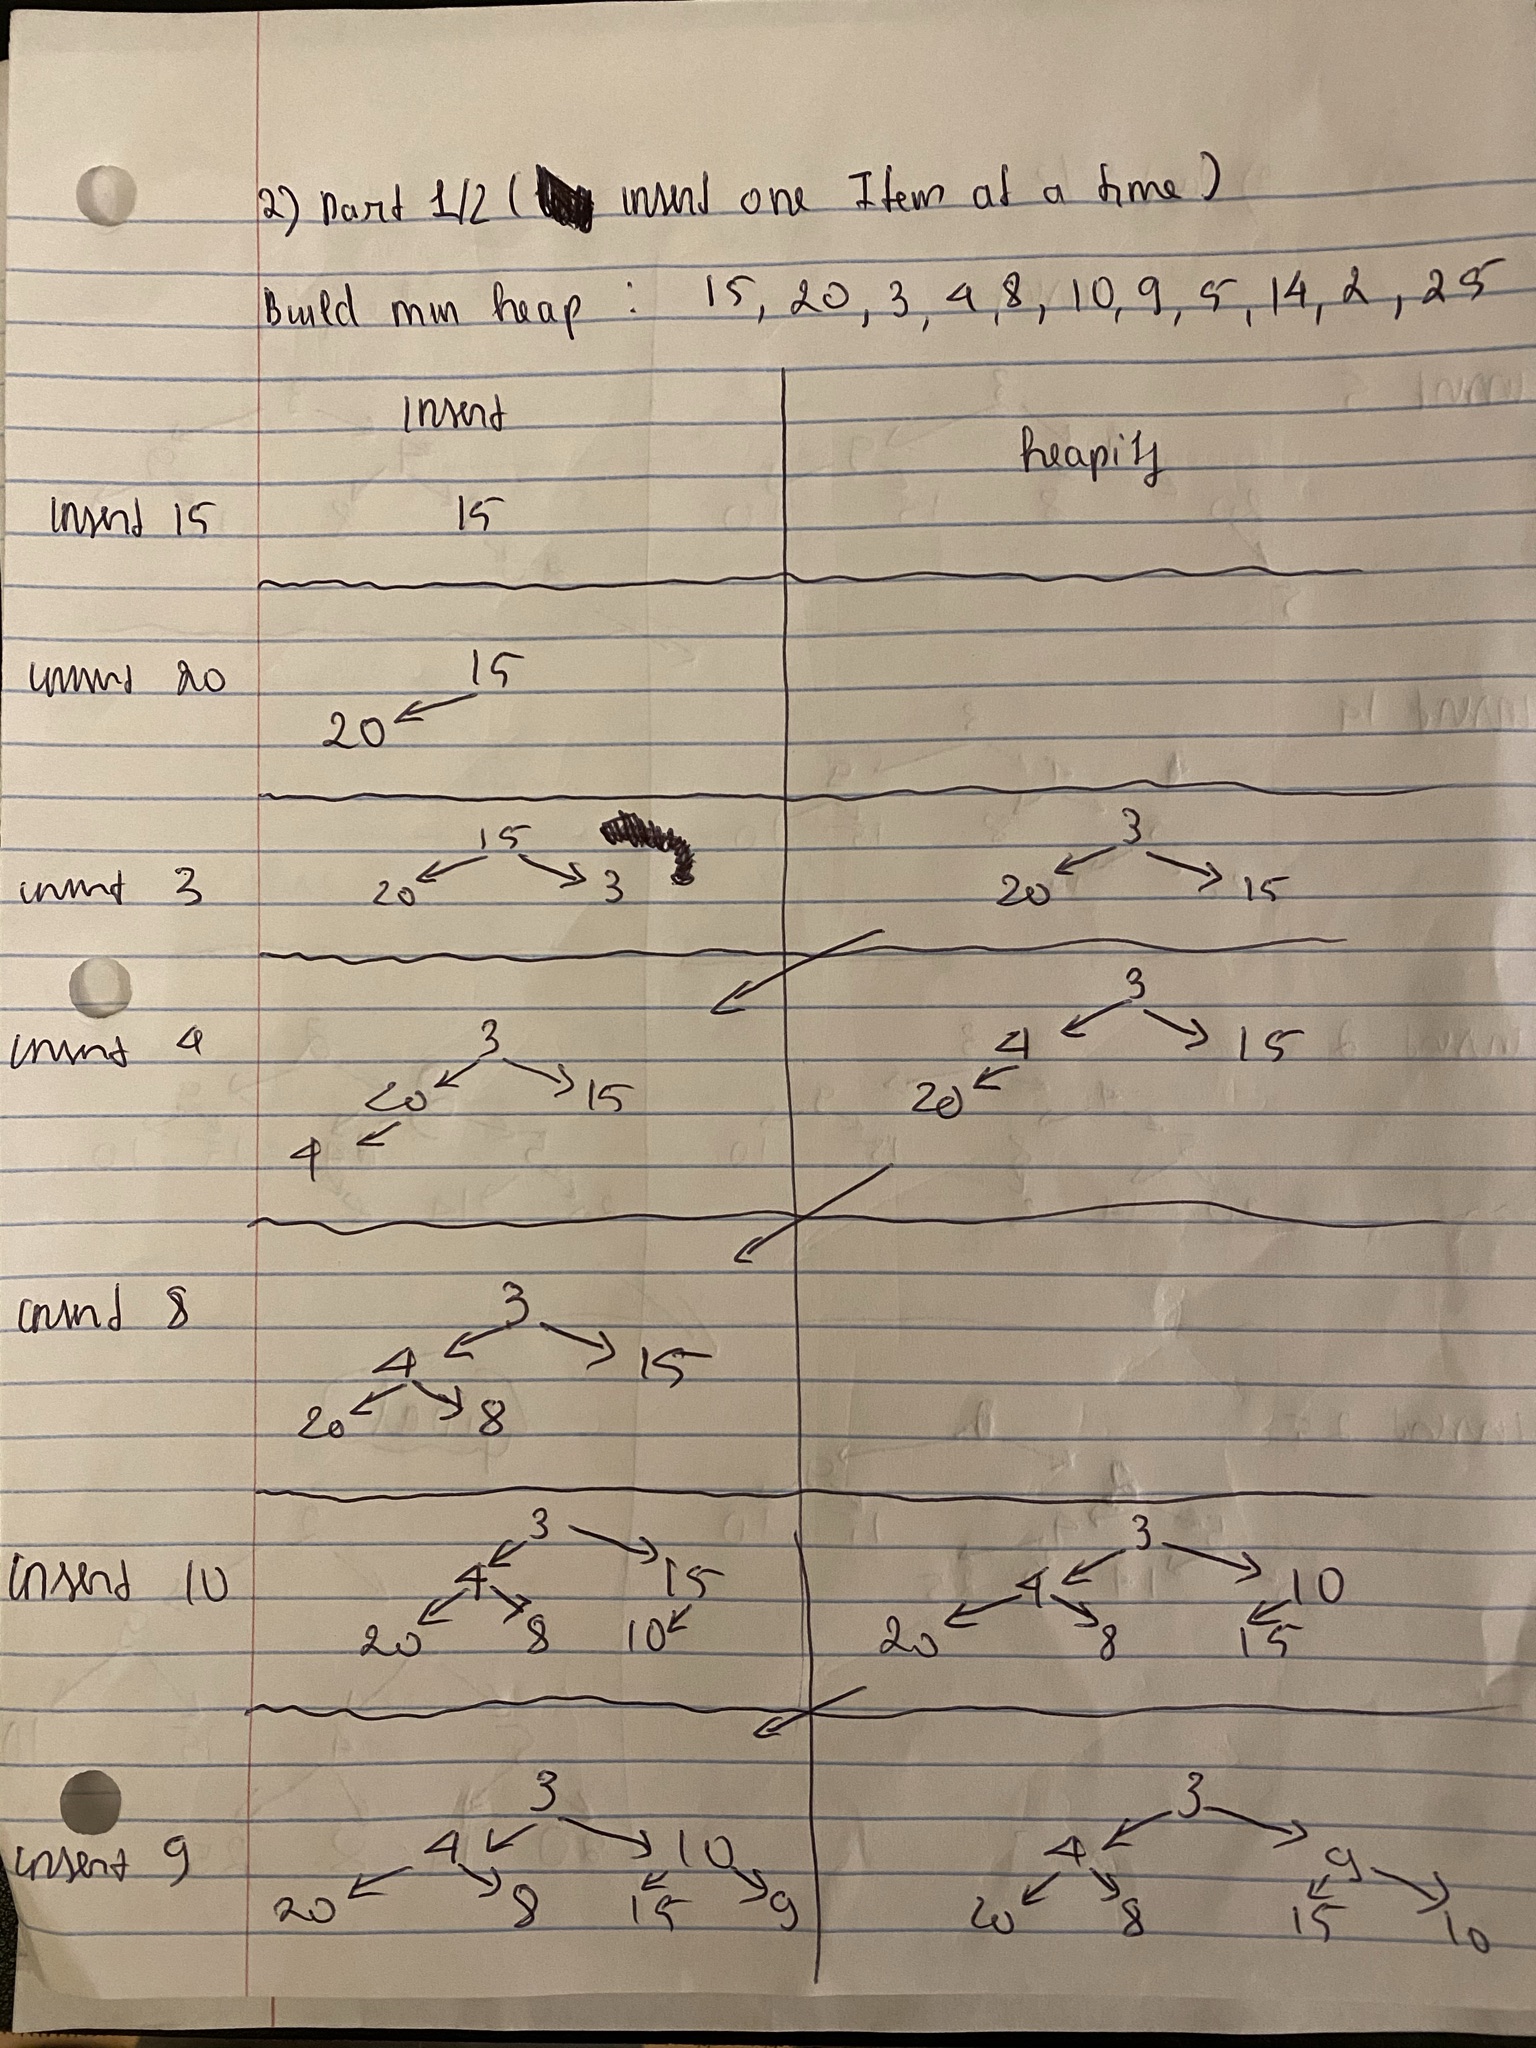 2) Part 1/2 ( insert one Item at a time)
Build min heap : 15, 20, 3, 4, 8, 10, 9, 5, 14, 2, 25
insert
heapify
insert 15 15
insert 20 15
20
15 3
insert 3 20 3 20 15
3
insert 4 3 4 15
20 15 20
4
insert 8 3
4 15
20 8
3 3
insert 10 4 15 4 10
20 8 10 20 8 15
3 3
insert 9 4 10 4 9
20 8 15 9 20 8 15 10